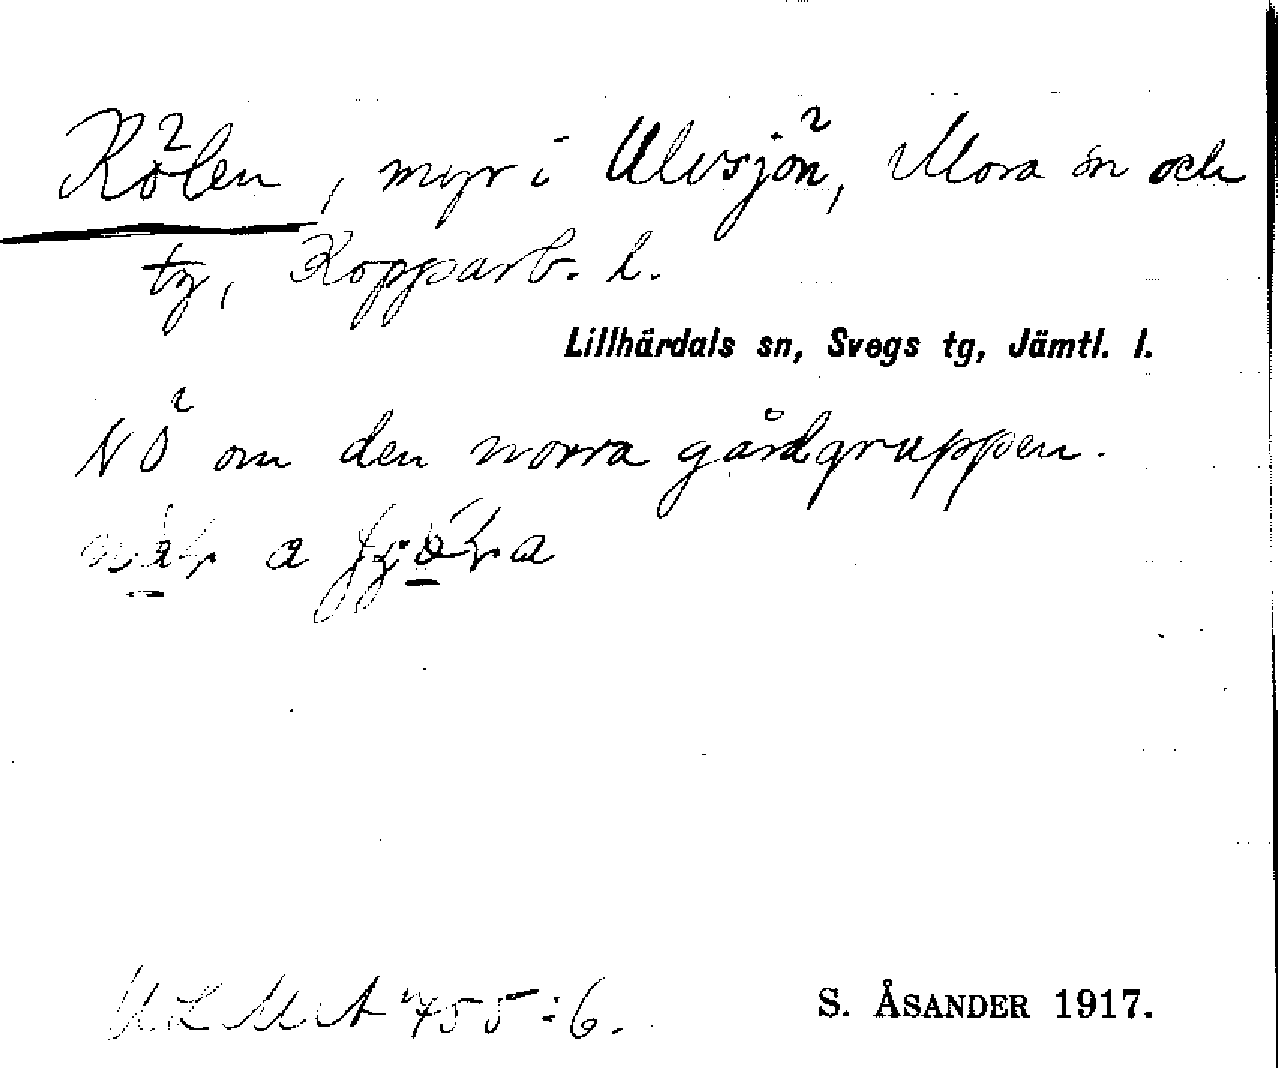 Kölen, myr i Ulvsjön, Mora sn och
tg, Kopparb. l.
Lillhärdals sn, Svegs tg, Jämtl. l.
NÖ om den norra gårdgruppen.
a
ULMA 755:6.
S. ÅSANDER 1917.